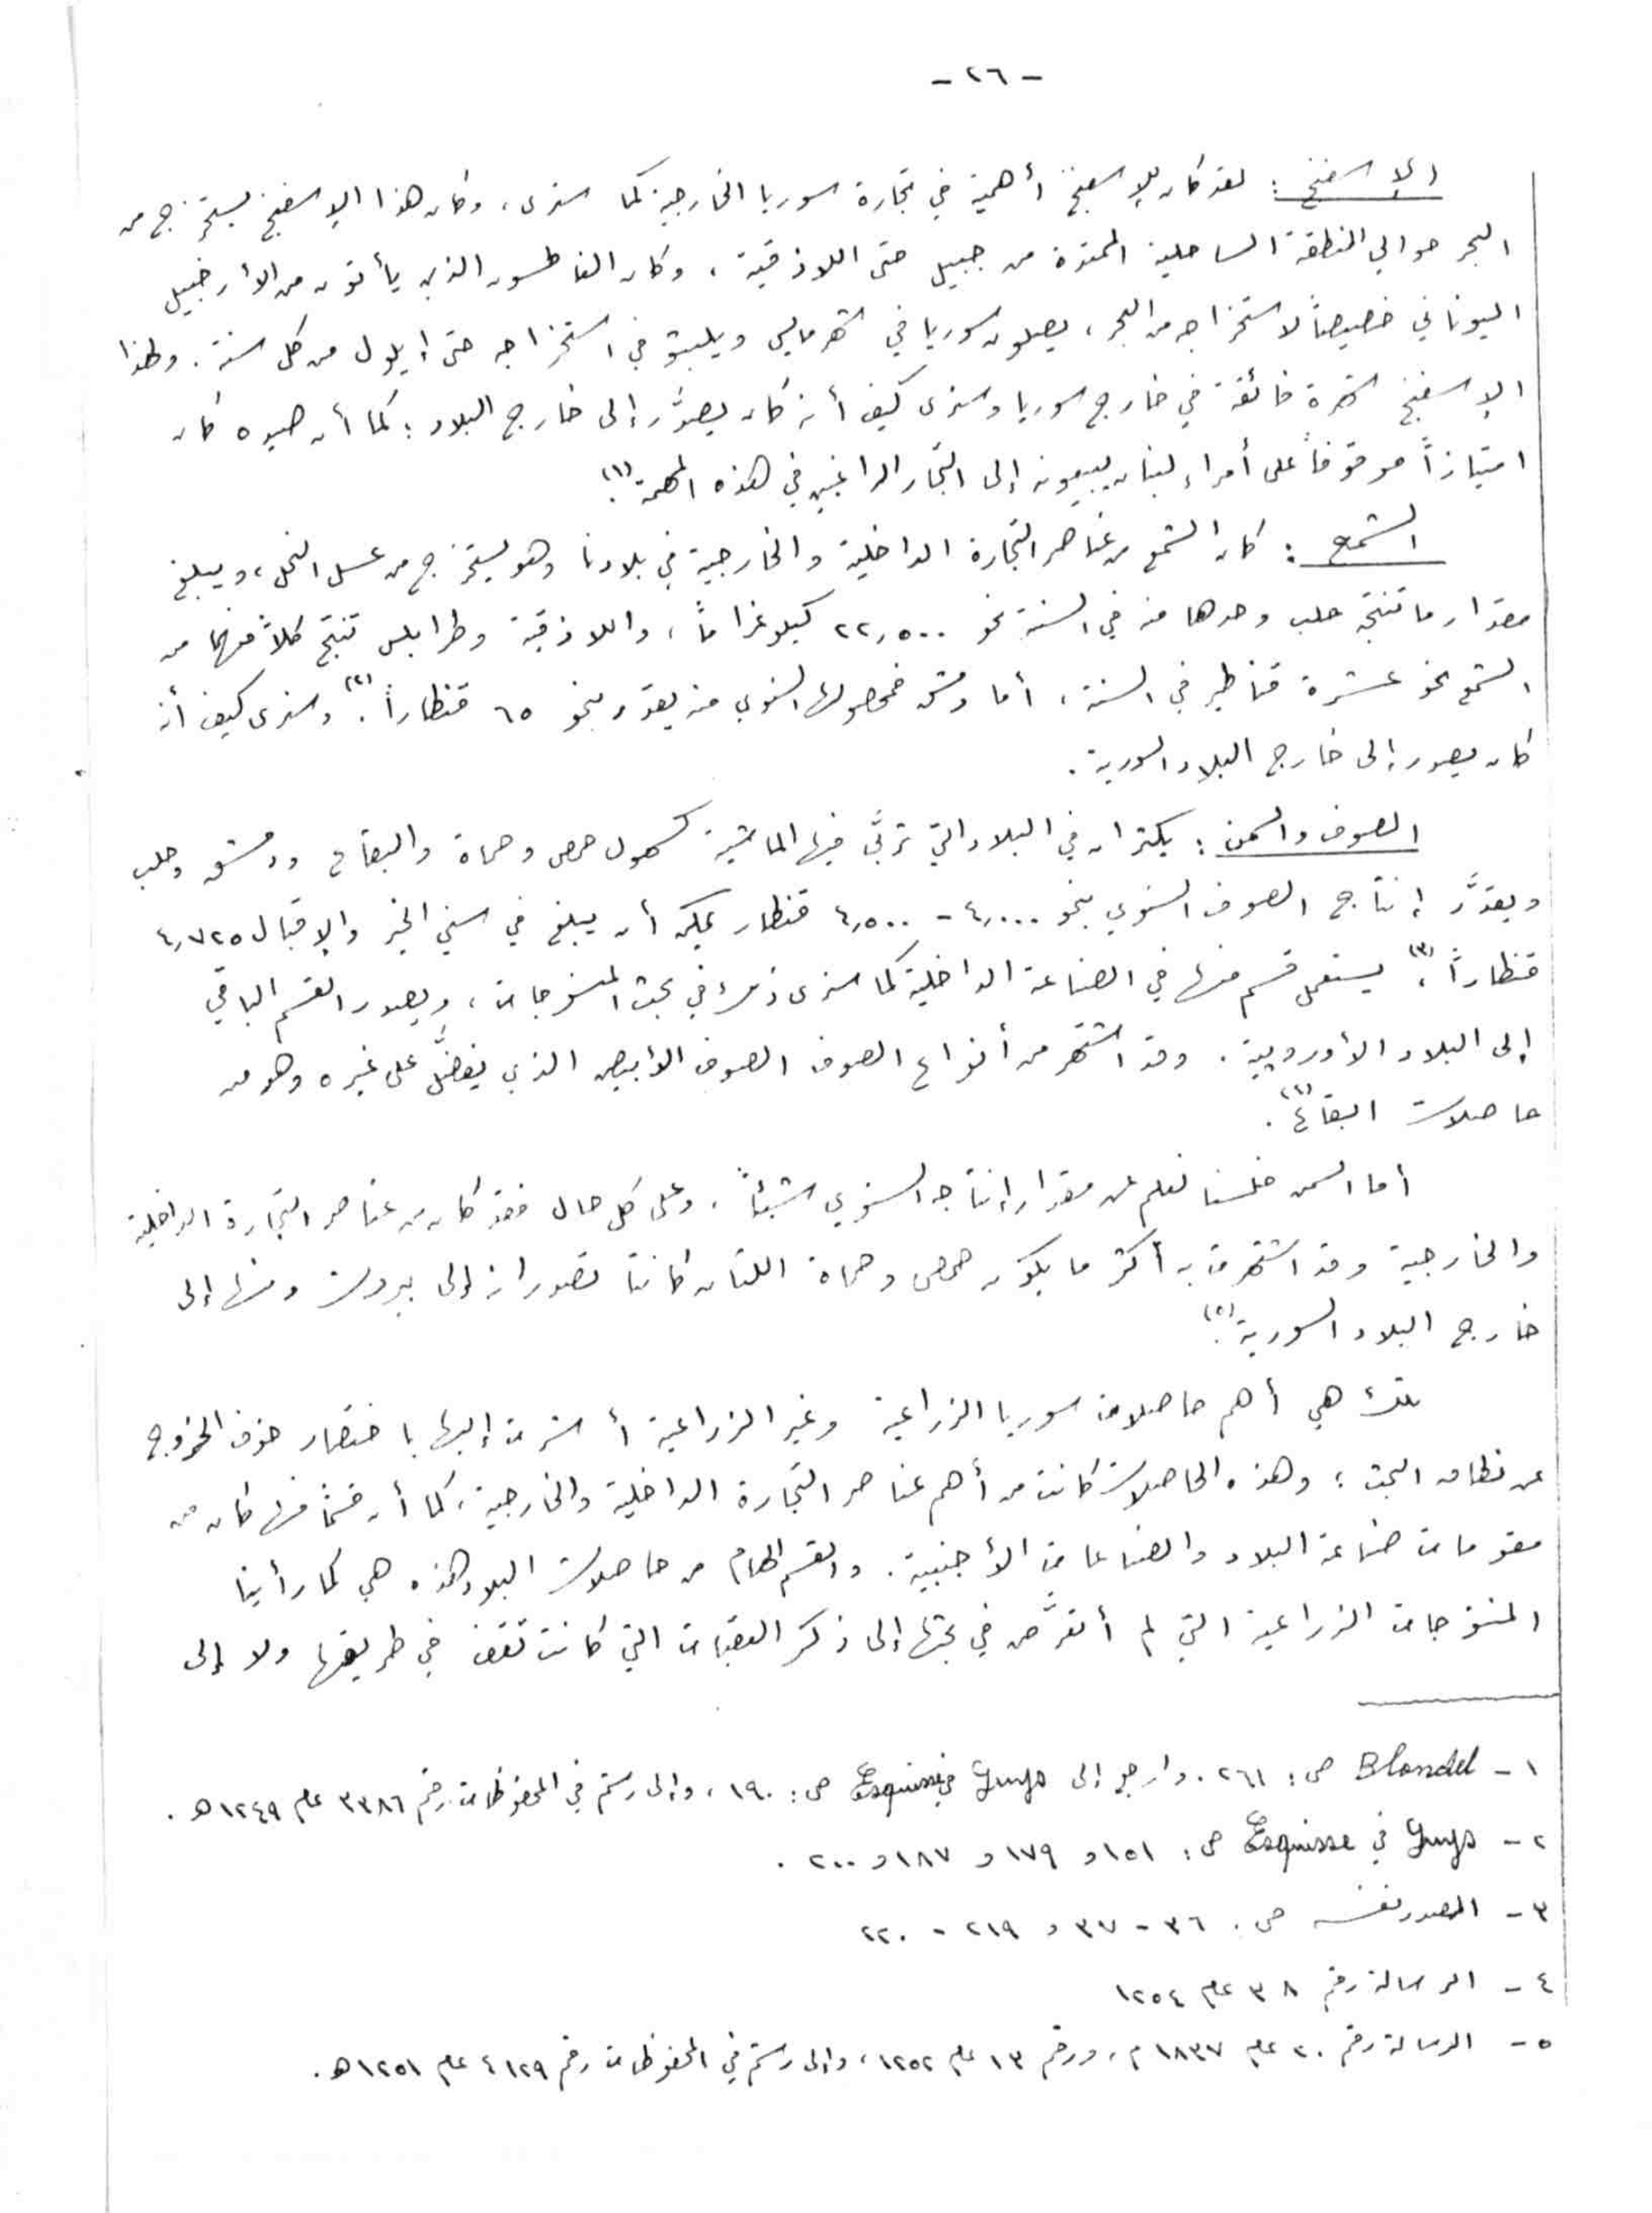 - ٢٦ -
الإسفنج : لقد كان للإسفنج أهمية في تجارة سوريا الخارجية كما سنرى ، وكان هذا الإسفنج يستخرج من
البحر حوالي المنطقة الساحلية الممتدة من جبيل حتى اللاذقية ، وكان الغاطسون الذين يأتون من الأرخبيل
اليوناني خصيصاً لاستخراجه من البحر ، يصلون سوريا في شهر مايس ويلبثو في استخراجه حتى إيلول من كل سنة . ولهذا
الإسفنج شهرة فائقة في خارج سوريا وسنرى كيف أنه كان يصدَّر إلى خارج البلاد ؛ كما أن صيده كان
امتيازاً موقوفاً على أمراء لبنان يبيعونه إلى التجار الراغبين في هذه المهمة (١).
الشمع : كان الشمع من عناصر التجارة الداخلية والخارجية في بلادنا وهو يستخرج من عسل النحل ، ويبلغ
مقدار ما تنتجه حلب وحدها منه في السنة نحو ٢٢,٥٠٠ كيلو غراماً ، واللاذقية وطرابلس تنتج كلاً منهما من
الشمع نحو عشرة قناطير في السنة ، أما دمشق فمحصولها السنوي منه يقدر بنحو ٦٥ قنطاراً (٢). وسنرى كيف أنه
كان يصدر إلى خارج البلاد السورية .
الصوف والسمن : يكثران في البلاد التي تربَّى فيها الماشية كسهول حمص وحماة والبقاع ودمشق وحلب
ويقدَّر إنتاج الصوف السنوي بنحو ٤,٠٠٠ - ٤,٥٠٠ قنطار يمكن أن يبلغ في سني الخير والإقبال ٤,٧٢٥
قنطاراً (٣)، يستعمل قسم منها في الصناعة الداخلية كما سنرى ذلك في بحث المنسوجات ، ويصدر القسم الباقي
إلى البلاد الأوروبية . وقد اشتهر من أنواع الصوف الصوف الأبيض الذي يفضَّل على غيره وهو من
حاصلات البقاع (٤) .
أما السمن فلسنا نعلم عن مقدار إنتاجه السنوي شيئاً ، وعلى كل حال فقد كان من عناصر التجارة الداخلية
والخارجية وقد اشتهرت به أكثر ما يكون حمص وحماة اللتان كانتا تصدرانه إلى بيروت ومنها إلى
خارج البلاد السورية (٥).
تلك هي أهم حاصلات سوريا الزراعية وغير الزراعية أشرت إليها باختصار خوف الخروج
عن نطاق البحث ؛ وهذه الحاصلات كانت من أهم عناصر التجارة الداخلية والخارجية ، كما أن قسماً منها كان من
مقومات صناعة البلاد والصناعات الأجنبية . والقسم الهام من حاصلات البلاد هذه هي كما رأينا
المنتوجات الزراعية التي لم أتعرَّض في بحثها إلى ذكر العقبات التي كانت تقف في طريقها ولا إلى
١ - Blondel ص : ٢٦١ . وارجع إلى Guys في Esquisse ص : ١٩٠ ، وإلى رستم في المحفوظات رقم ٣٣٨٦ عام ١٢٤٩ هـ .
٢ - Guys في Esquisse ص : ١٥١ و ١٧٩ و ١٨٧ و ٢٠٠ .
٣ - المصدر نفسه ص . ٣٦ - ٣٧ و ٢١٩ - ٢٢٠
٤ - الرسالة رقم ٣٨ عام ١٢٥٤
٥ - الرسالة رقم ٢٠ عام ١٨٣٧ م ، ورقم ١٣ عام ١٢٥٢ ، وإلى رستم في المحفوظات رقم ٤١٢٩ عام ١٢٥١ هـ .